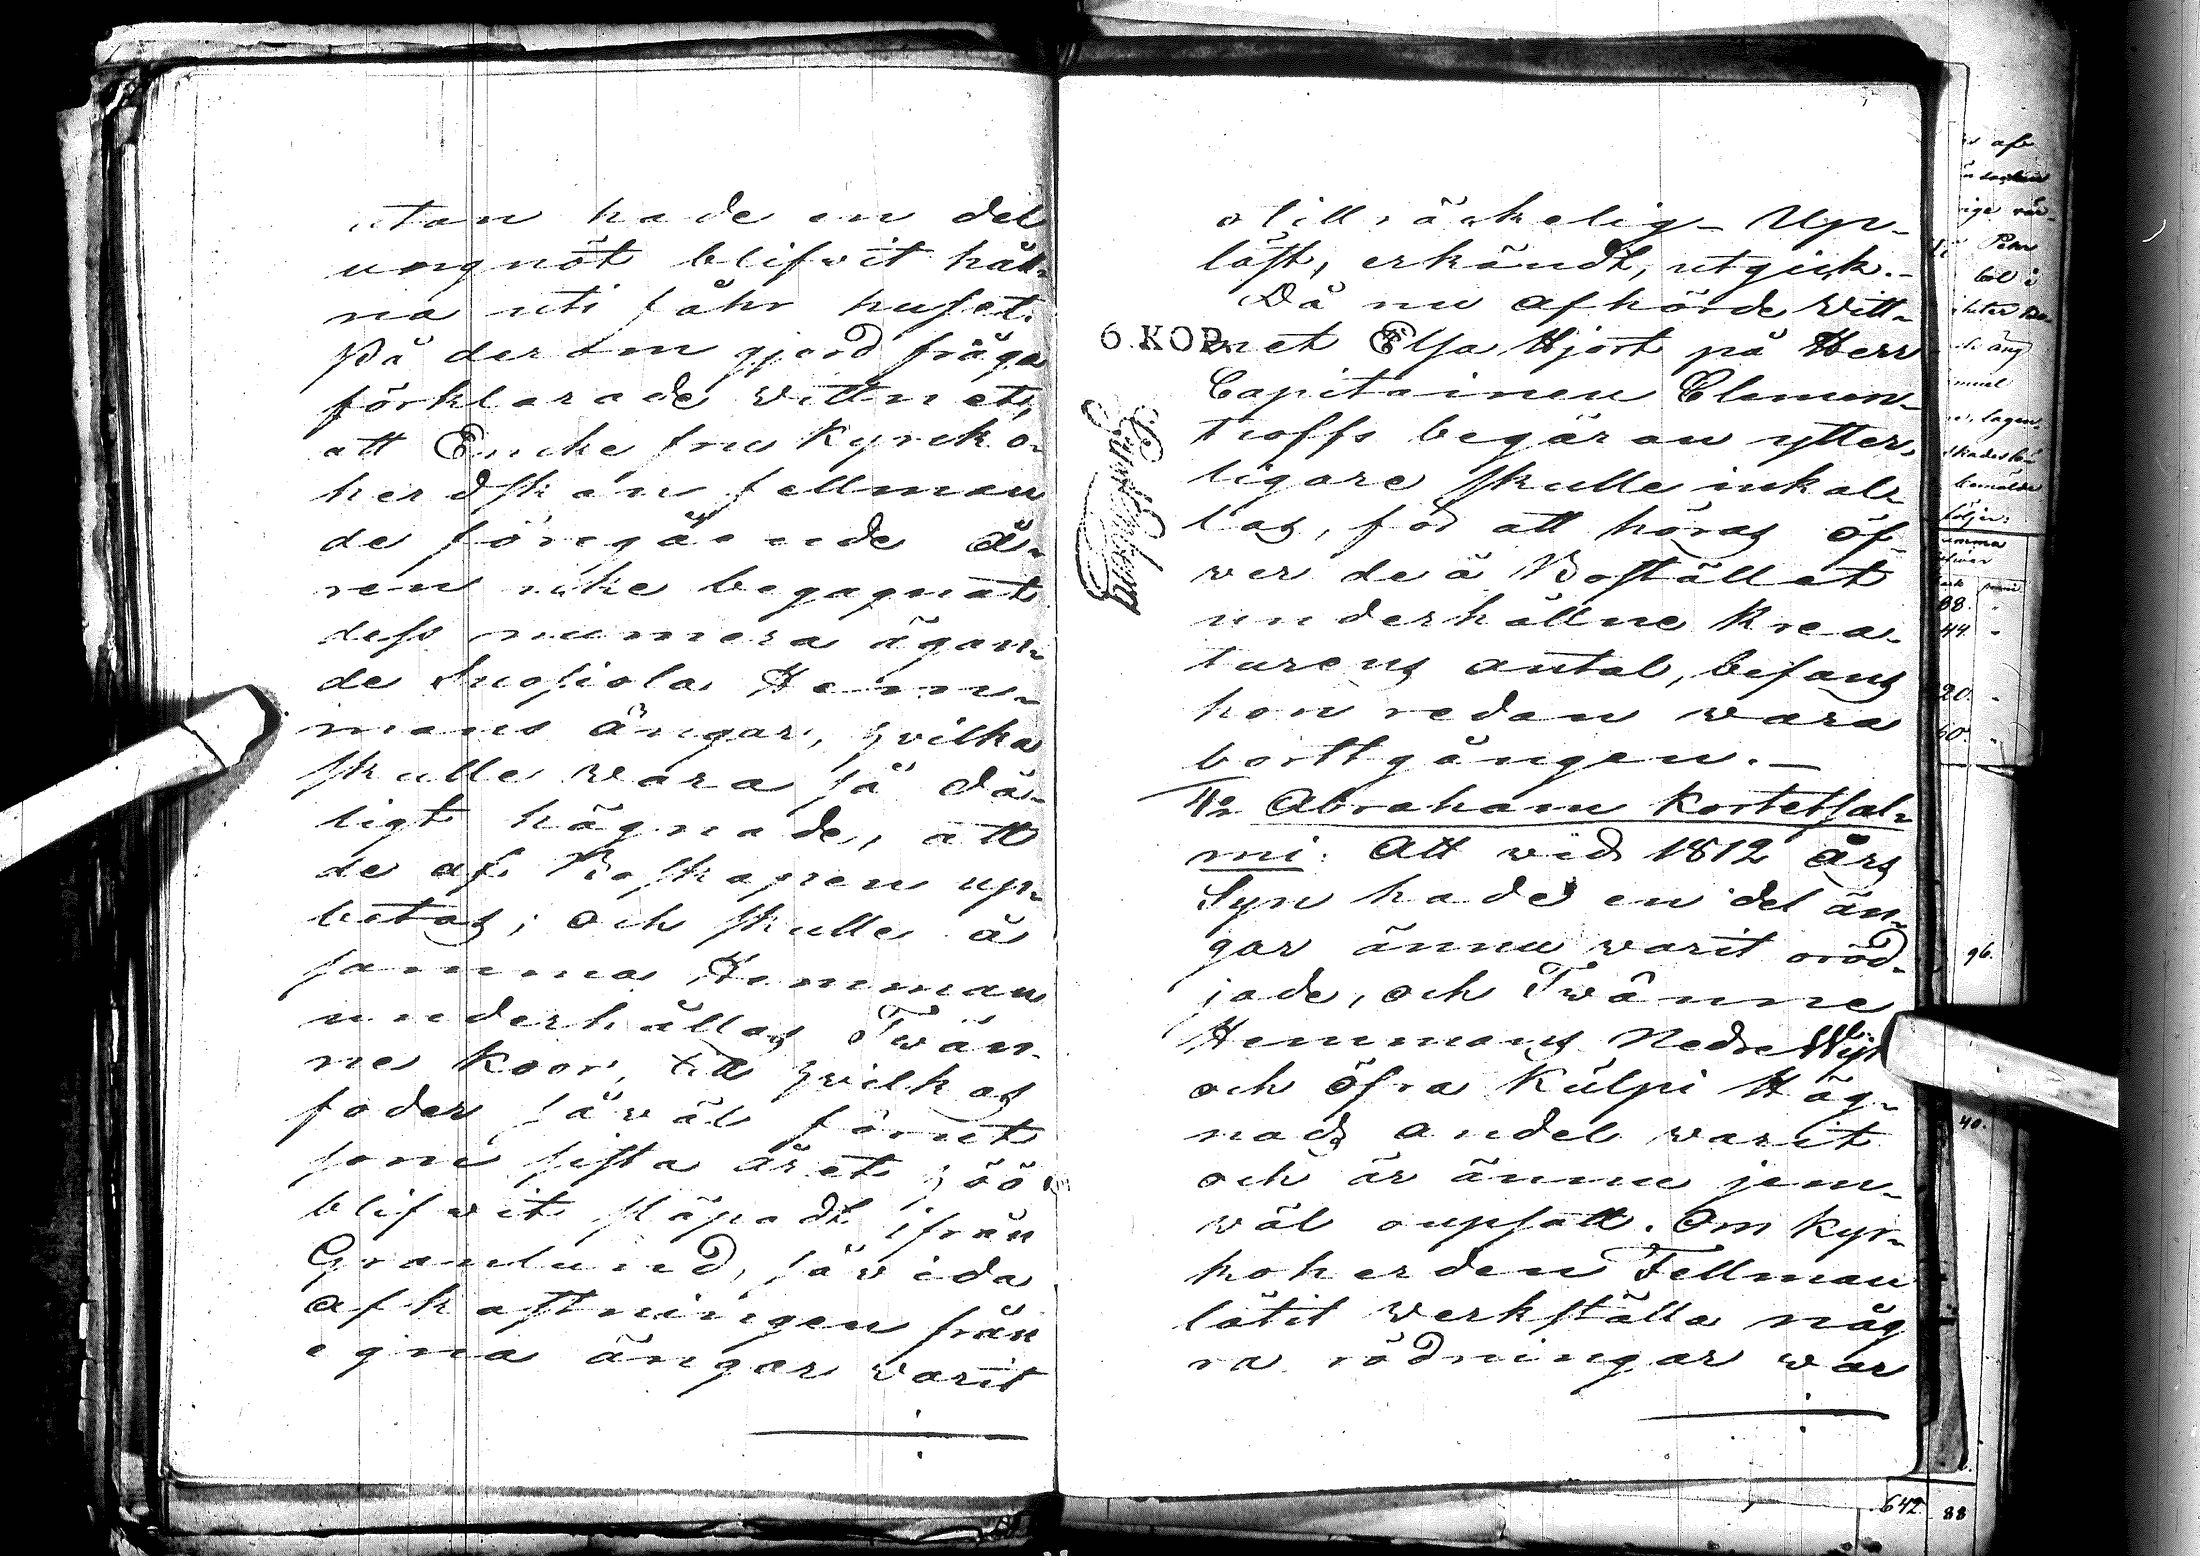 utan hade en del
ungnöt blifvit häk-
na uti fähr huset.
På der om gjord fråga
förklarade wittnet,
att Encke fru Kyrcko-
herdskan fellman
de föregående å-
ren icke begagnat
dess numera ägan-
de Suosiola Hem-
mans ängar, hvilka
skulle wara så då-
ligt hägnade, att
de af Boskapen up-
betas; och skulle å
samma Hemman
underhållas Twän-
ne Koor, till hvilkas
foder såwäl förut
som sista året höö
blifwit släpadt ifrån
Granlund, såvida
afkastningen från
egna ängar warit
otillräckelig. Up-
läst, erkändt, utgick.-
Då nu afhörde Witt-
6.KOP.
net Elsa Hjort på Herr
Capitainen Clemen-
tieoffs begäran ytter-
ligare skulle inkal-
las, för att höras öf-
wer de å Bostället
underhållne Krea-
turens antal, befans
hon redan wara
bortgången.-
4:o Abraham Kortetsal-
mi: Att wid 1812 års
Syn hade en del än-
gar ännu warit oröd-
jade, och Twänne
Hemmans Nedre
och öfra Kulpi Häg-
nads andel warit
och är ännu jem-
wäl oupsatt. Om Kyr-
koherden Fellman
låtit werkställa någ
ra rödningar war
642 88